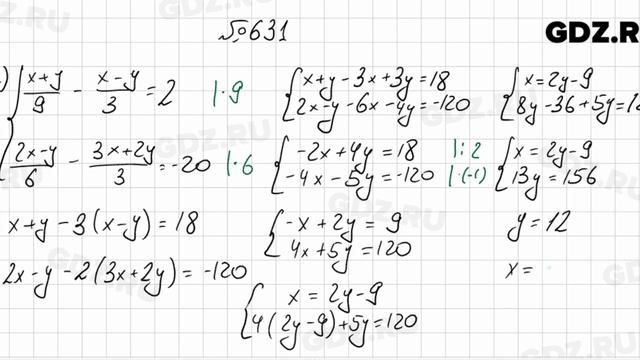 №631
GDZ.R
) { (x+y)/9 - (x-y)/3 = 2 |·9
(2x-y)/6 - (3x+2y)/3 = -20 |·6
x+y-3(x-y)=18
2x-y-2(3x+2y)=-120
{ x+y-3x+3y=18
2x-y-6x-4y=-120
{ -2x+4y=18 |:2
-4x-5y=-120 |·(-1)
{ -x+2y=9
4x+5y=120
{ x=2y-9
4(2y-9)+5y=120
{ x=2y-9
8y-36+5y=12
{ x=2y-9
13y=156
y=12
x=